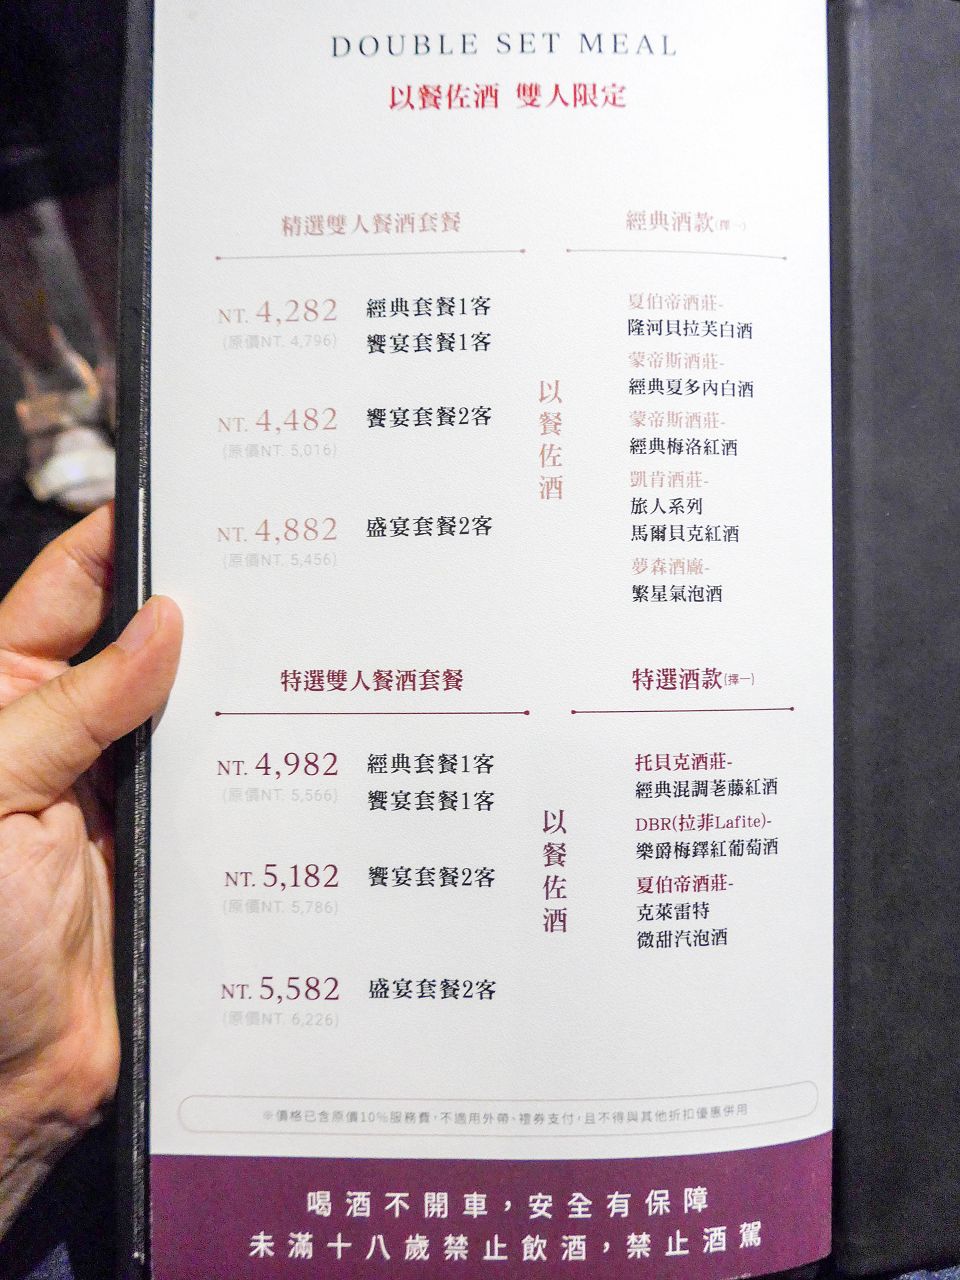 DOUBLE SET MEAL
以餐佐酒 雙人限定
精選雙人餐酒套餐
NT. 4,282 經典套餐1客
(原價NT. 4,796) 饗宴套餐1客
NT. 4,482 饗宴套餐2客
(原價NT. 5,016)
NT. 4,882 盛宴套餐2客
(原價NT. 5,456)
以餐佐酒
經典酒款(擇一)
夏伯帝酒莊-
隆河貝拉芙白酒
蒙帝斯酒莊-
經典夏多內白酒
蒙帝斯酒莊-
經典梅洛紅酒
凱肯酒莊-
旅人系列
馬爾貝克紅酒
夢森酒廠-
繁星氣泡酒
特選雙人餐酒套餐
NT. 4,982 經典套餐1客
(原價NT. 5,566) 饗宴套餐1客
NT. 5,182 饗宴套餐2客
(原價NT. 5,786)
NT. 5,582 盛宴套餐2客
(原價NT. 6,226)
以餐佐酒
特選酒款(擇一)
托貝克酒莊-
經典混調荖藤紅酒
DBR(拉菲Lafite)-
樂爵梅鐸紅葡萄酒
夏伯帝酒莊-
克萊雷特
微甜汽泡酒
※價格已含原價10%服務費,不適用外帶、禮券支付,且不得與其他折扣優惠併用
喝酒不開車,安全有保障
未滿十八歲禁止飲酒,禁止酒駕